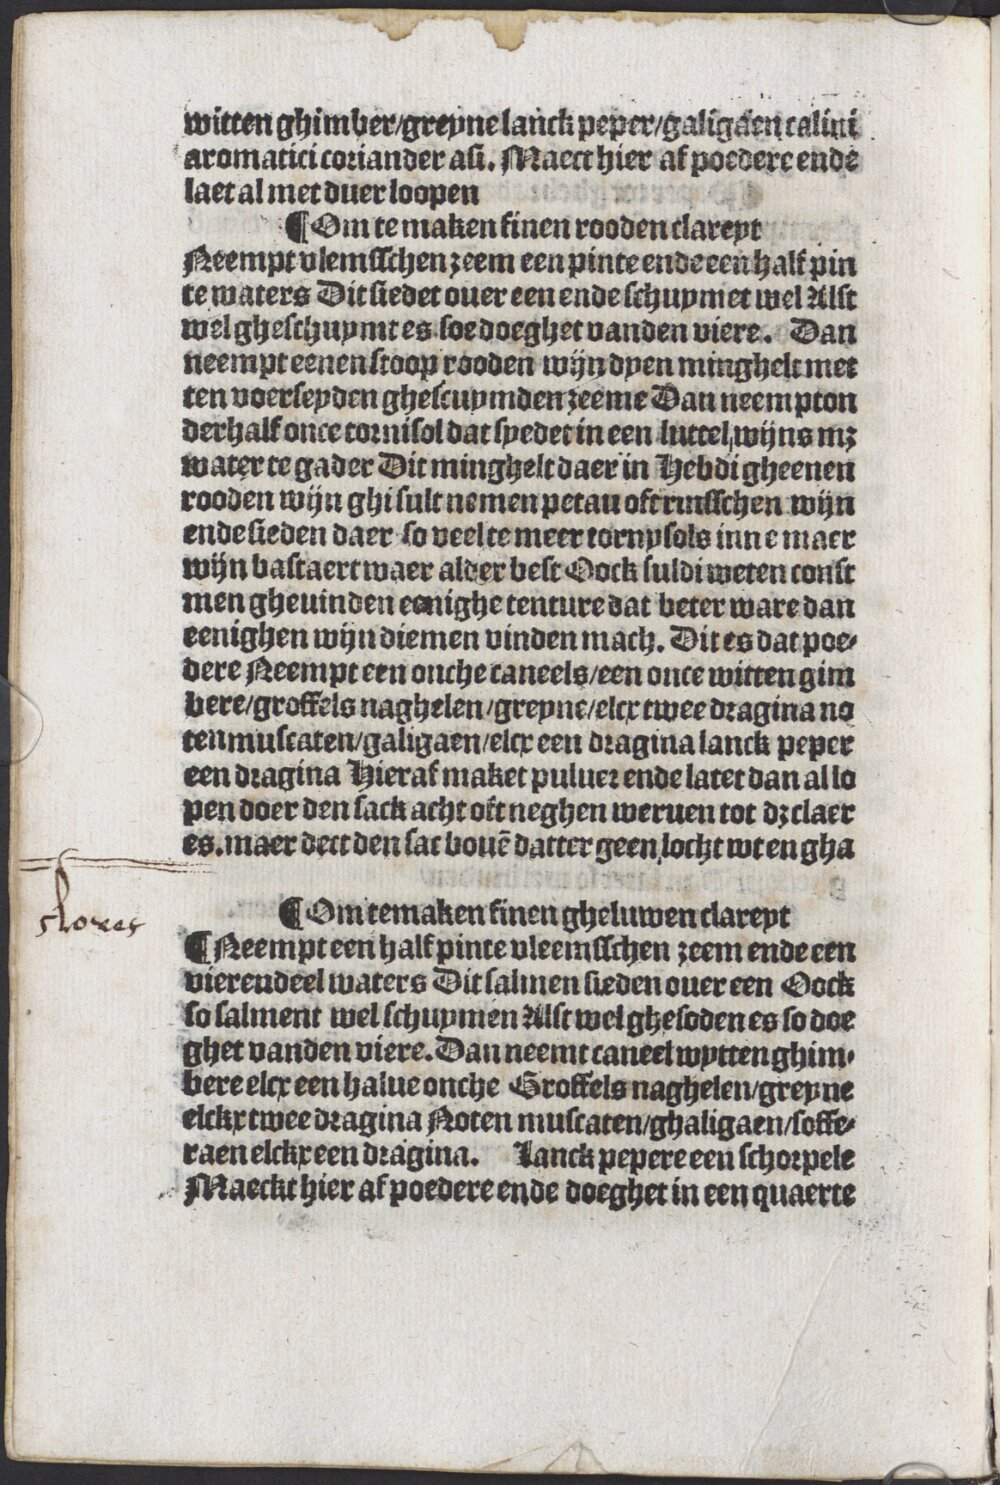 witten ghimber/greyne lanck peper/galigaen calini
aromatici coriander asi. Maect hier af poedere ende
laet al met duer loopen
¶ Om te maken finen rooden clareyt
Neempt vlemsschen zeem een pinte ende een half pin
te waters Dit siedet ouer een ende schuymet wel Alst
wel gheschuymt es soe doeghet vanden viere. Dan
neempt eenen stoop rooden wijn dyen minghelt met
ten voerseyden ghescuymden zeeme Dan neempt on
derhalf once tornisol dat syedet in een luttel wijns mz
water te gader Dit minghelt daer in Hebdi gheenen
rooden wijn ghi sult nemen petau oft rinsschen wijn
ende sieden daer so veel te meer tornysols inne maer
wijn bastaert waer alder best Oock suldi weten const
men gheuinden eenighe tenture dat beter ware dan
eenighen wijn diemen vinden mach. Dit es dat poe-
dere Neempt een onche caneels/een once witten gim
bere/groffels naghelen/greyne/elcx twee dragina no
ten muscaten/galigaen/elcx een dragina lanck peper
een dragina Hieraf maket puluer ende latet dan al lo
pen doer den sack acht oft neghen weruen tot dz claer
es. maer dect den sac bouē datter geen locht wt en gha
cloxes
¶ Om te maken finen gheluwen clareyt
¶ Neempt een half pinte vleemsschen zeem ende een
vierendeel waters Dit salmen sieden ouer een Oock
so salment wel schuymen Alst wel ghesoden es so doe
ghet vanden viere. Dan neemt caneel wytten ghim-
bere elcx een halue onche Groffels naghelen/greyne
elckx twee dragina Noten muscaten/ghaligaen/soffe-
raen elckx een dragina. Lanck pepere een schorpele
Maeckt hier af poedere ende doeghet in een quaerte